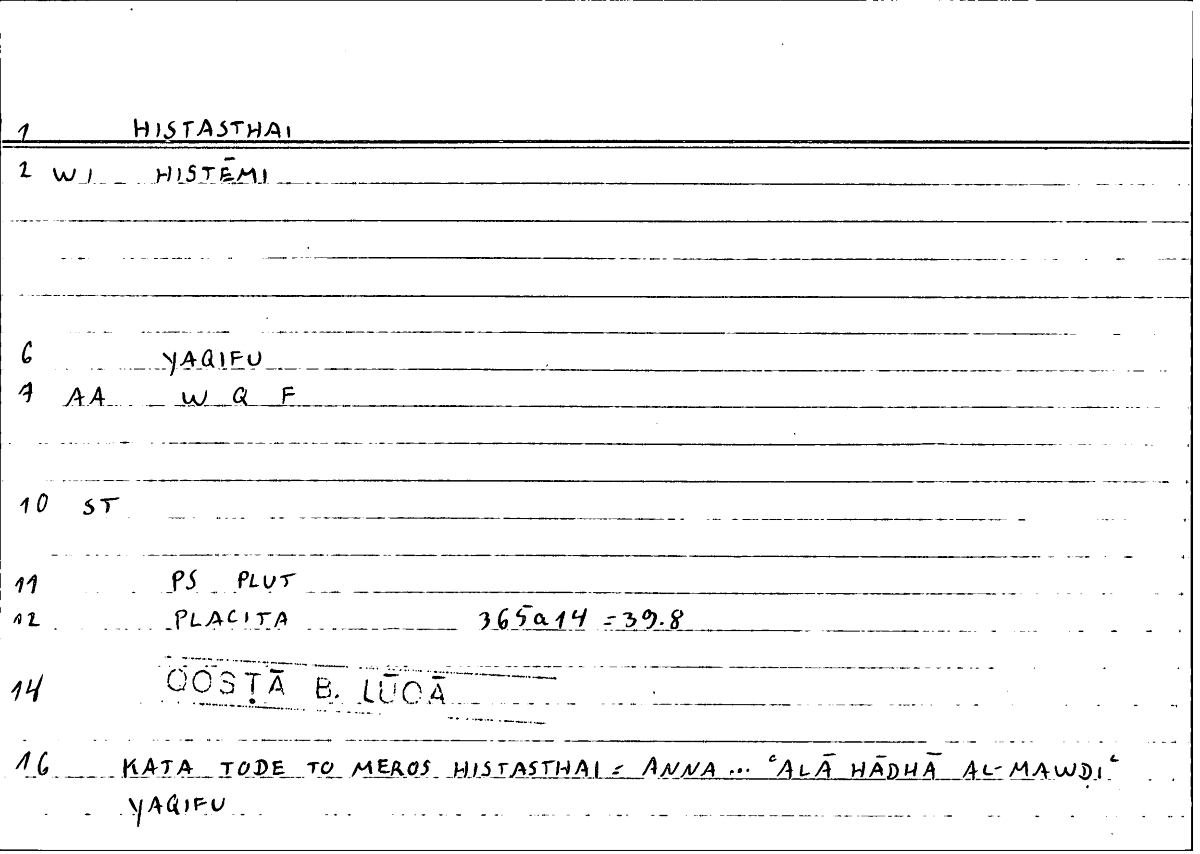 1 HISTASTHAI
2 WI HISTĒMI
6 YAQIFU
7 AA W Q F
10 ST
11 PS PLUT
12 PLACITA 365a14 = 39.8
14 QOSṬĀ B. LŪQĀ
16 KATA TODE TO MEROS HISTASTHAI = ANNA ... ʿALĀ HĀDHĀ AL-MAWḌIʿ
YAQIFU